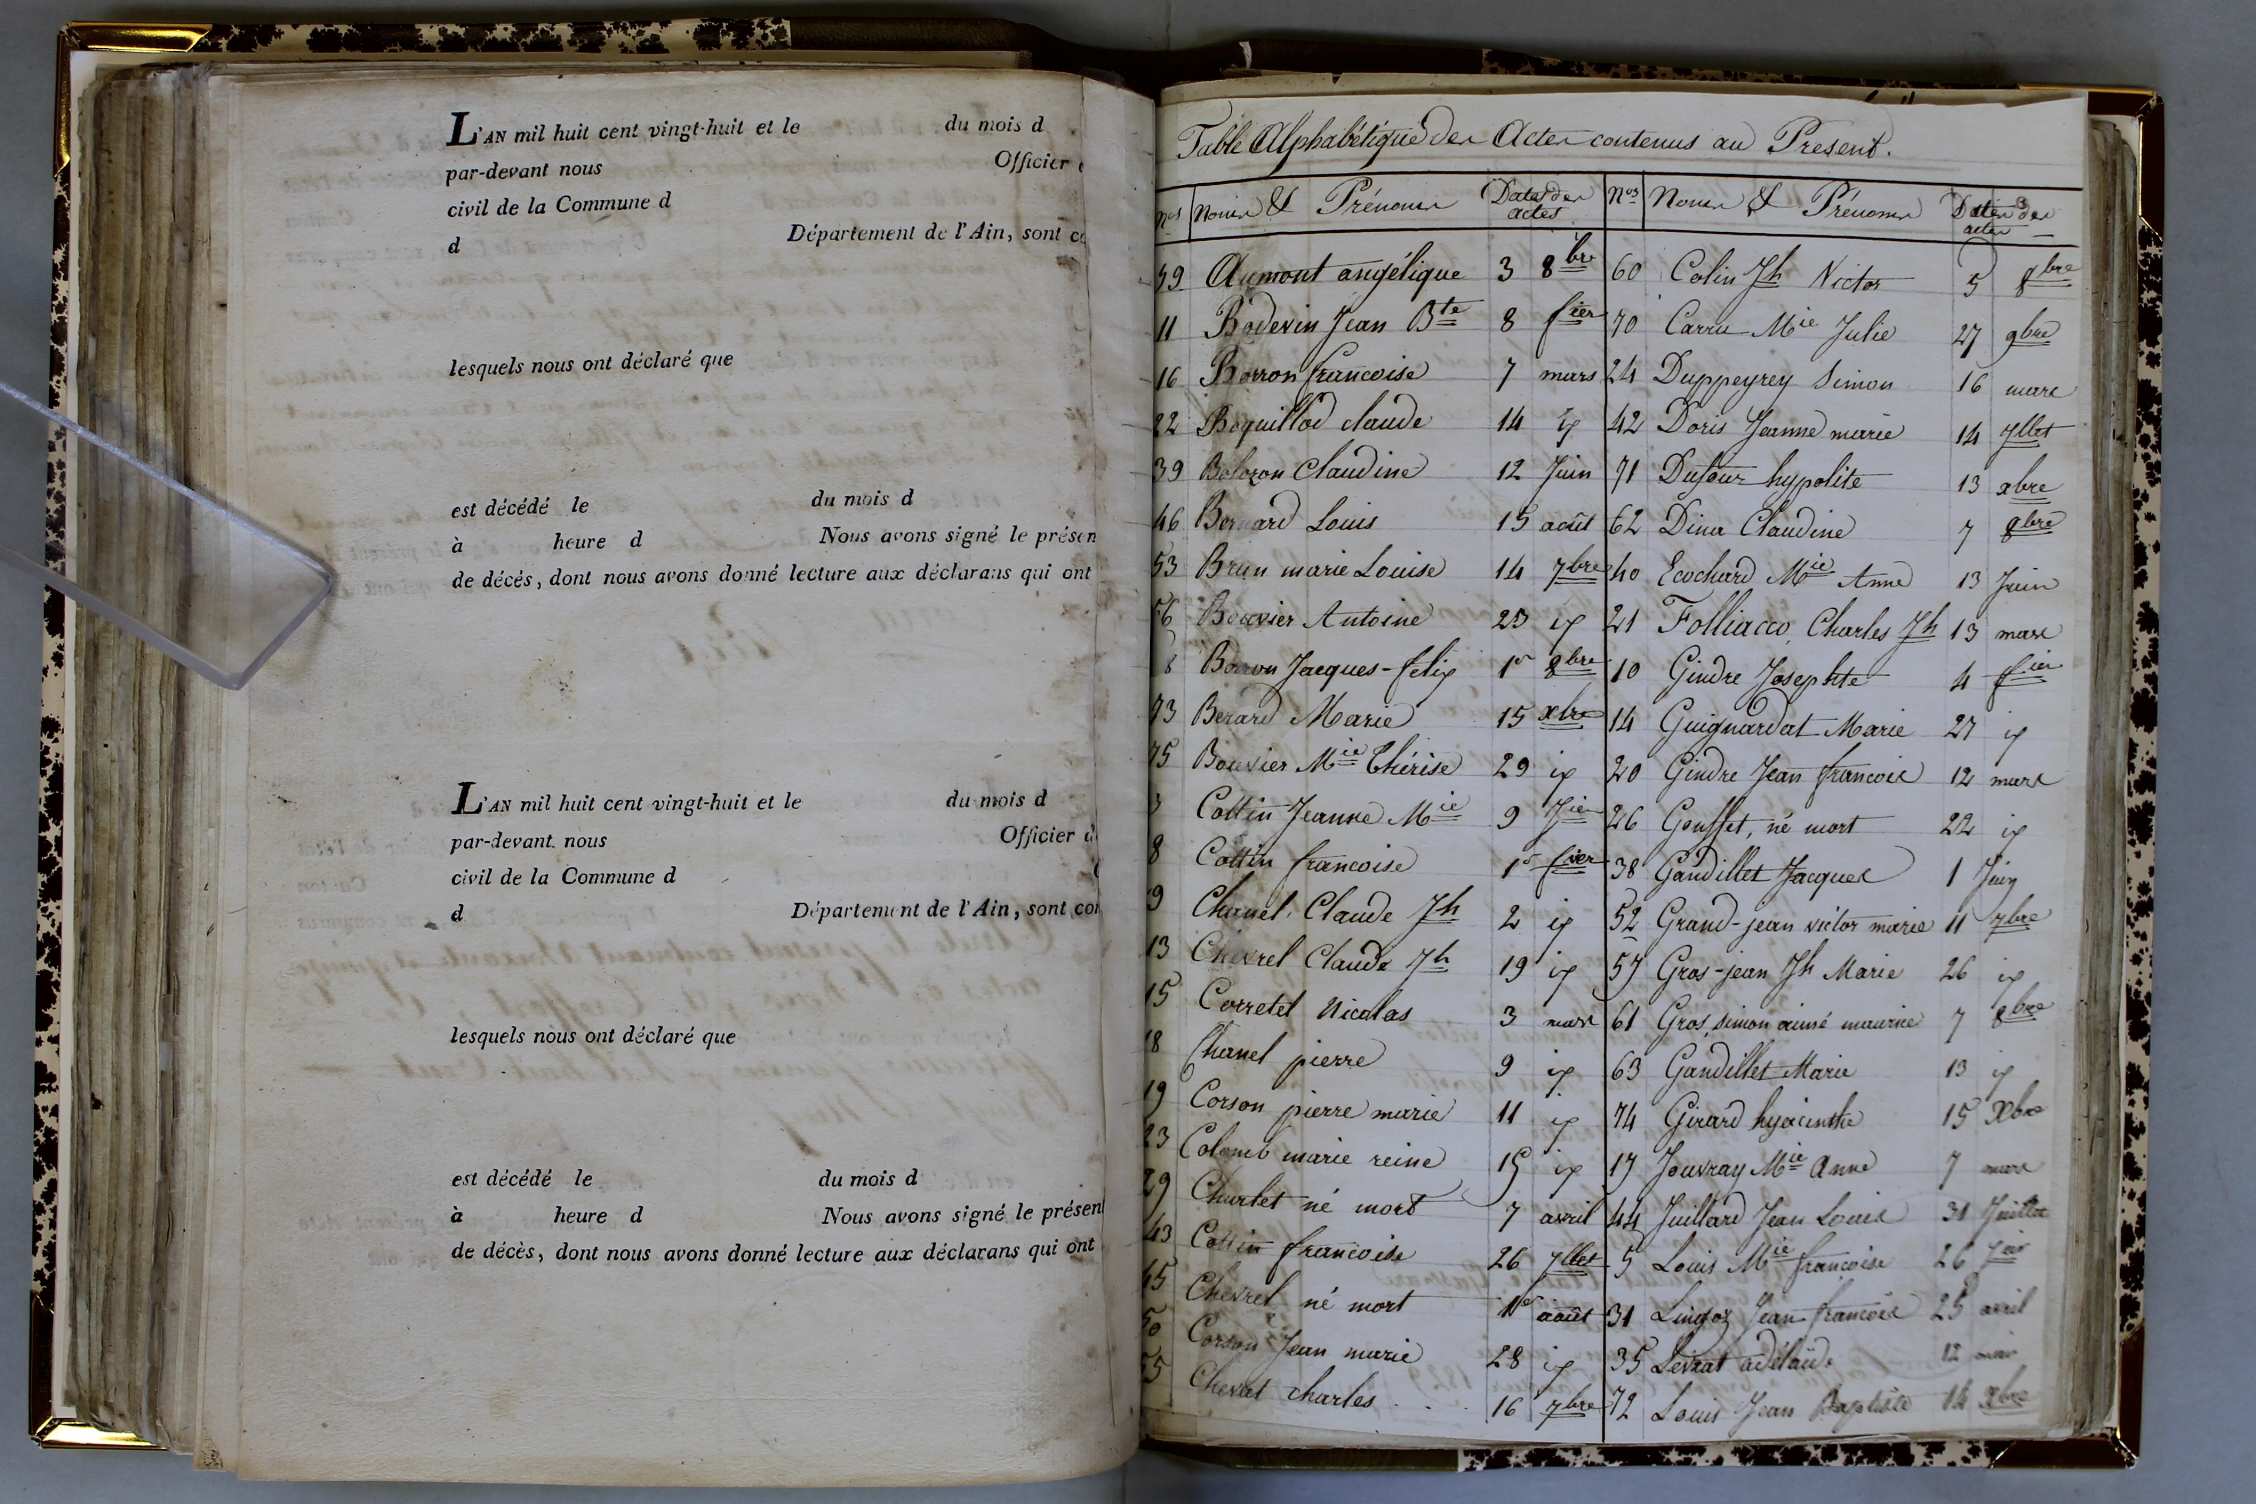 L'AN mil huit cent vingt-huit et le du mois d
par-devant nous Officier
civil de la Commune d
d Département de l'Ain, sont
lesquels nous ont déclaré que
est décédé le du mois d
à heure d Nous avons signé le présen
de décès, dont nous avons donné lecture aux déclarans qui ont
L'AN mil huit cent vingt-huit et le du mois d
par-devant nous Officier d
civil de la Commune d
d Département de l'Ain, sont con
lesquels nous ont déclaré que
est décédé le du mois d
à heure d Nous avons signé le présent
de décès, dont nous avons donné lecture aux déclarans qui ont
Table Alphabétique des Actes contenus au Present.
Nos Noms & Prénoms Dates des actes
59 Aumont angélique 3 8bre
11 Bodevin Jean Bte 8 fier
16 Borron francoise 7 mars
22 Boquillod claude 14 id
39 Bolozon Claudine 12 Juin
46 Bernard Louis 15 août
53 Brun marie Louise 14 7bre
56 Bouvier Antoine 23 id
8 Borron Jacques-felix 1er 8bre
73 Berard Marie 15 xbre
75 Bouvier Mie Thérise 29 id
3 Cottin Jeanne Mie 9 Jier
8 Cottin francoise 1er fier
9 Chanel Claude Jh 2 id
13 Chevrel Claude Jh 19 id
15 Corretel Nicolas 3 mars
18 Chanel pierre 9 id
19 Corson pierre marie 11 id
23 Colomb marie reine 15 id
29 Charlet né mort 7 avril
43 Cottin francoise 26 7llet
45 Chevrel né mort 1er août
50 Corson Jean marie 28 id
55 Chevat charles 16 7bre
Nos Noms & Prénoms Dates des actes
60 Colin Jh Victor 5 8bre
70 Carru Mie Julie 27 9bre
24 Duppeyrey Simon 16 mars
42 Doris Jeanne marie 14 7llet
71 Dufour hypolite 13 xbre
62 Dina Claudine 7 8bre
40 Ecochard Mie Anne 13 Juin
21 Folliacco Charles Jh 13 mars
10 Gindre Josephte 4 fier
14 Guignardat Marie 27 id
20 Gindre Jean francois 12 mars
26 Gousset, né mort 22 id
38 Gandillet Jacques 1 Juin
52 Grand-jean victor marie 11 7bre
57 Gros-jean Jh Marie 26 id
61 Gros, simon aimé maurice 7 8bre
63 Gandillet Marie 13 id
74 Girard hyacinthe 15 Xbre
17 Jouvray Mie Anne 7 mars
44 Juillard Jean Louis 31 Juillet
5 Louis Mie francoise 26 Jier
31 Jean francois 25 avril
35 Levrat adélaïde 12 mai
72 Louis Jean Baptiste 14 Xbre